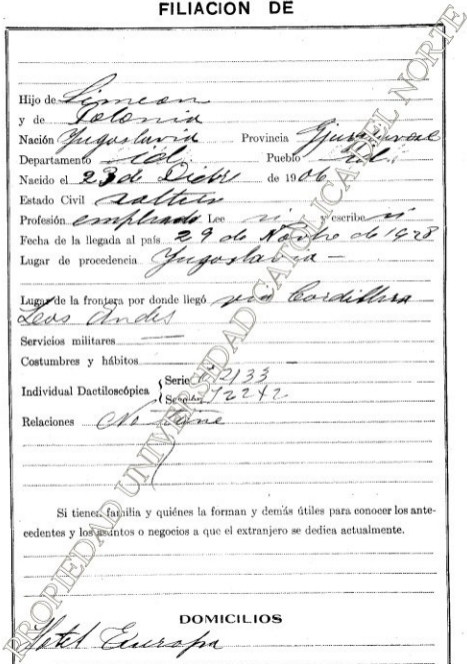 FILIACION DE
Hijo de Simeon
y de Polonia
Nación Yugoslavia Provincia
Departamento id. Pueblo id.
Nacido el 23 de Dicbre de 1906
Estado Civil soltero
Profesión empleado Lee si y escribe si
Fecha de la llegada al país 29 de Novbre de 1928
Lugar de procedencia Yugoslavia —
Lugar de la frontera por donde llegó via Cordillera
Los Andes
Servicios militares —
Costumbres y hábitos —
Individual Dactiloscópica { Serie
Sección
Relaciones No tiene
Si tiene familia y quiénes la forman y demás útiles para conocer los ante-
cedentes y los asuntos o negocios a que el extranjero se dedica actualmente.
DOMICILIOS
Hotel Europa
PROPIEDAD UNIVERSIDAD CATOLICA DEL NORTE